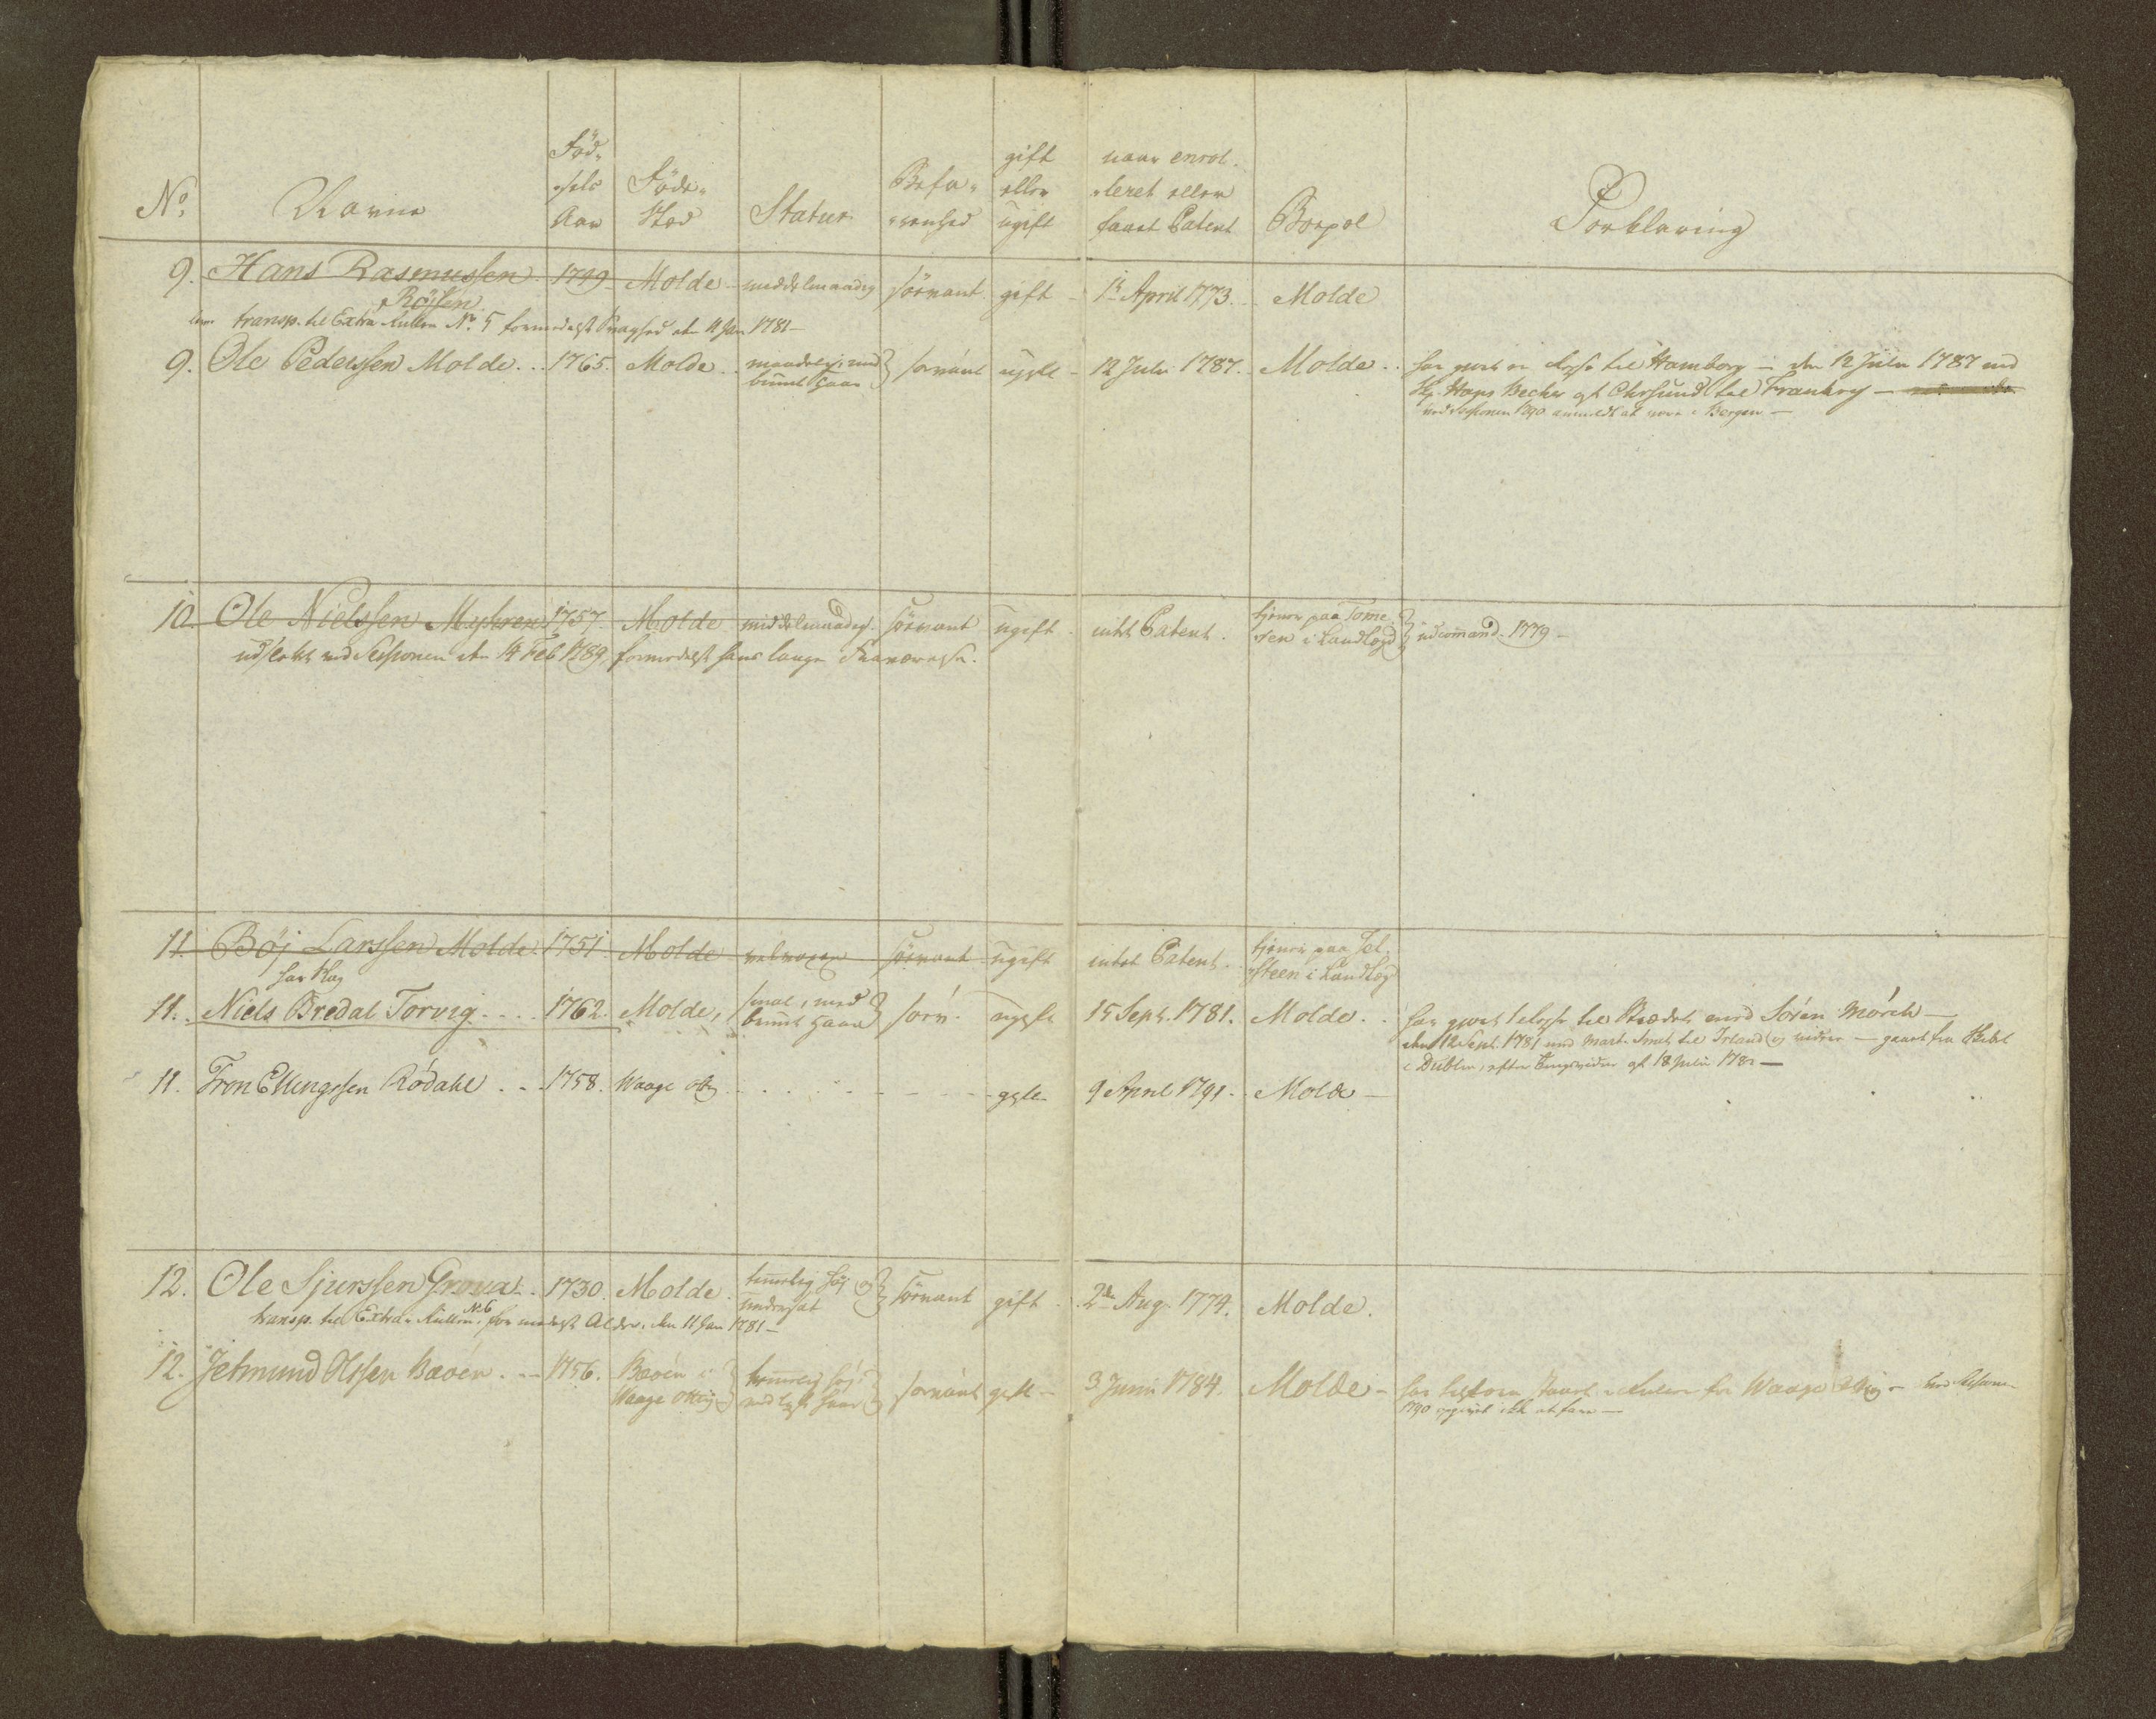 No. Navne Fød- -sels Aar Føde- Stæd Statur Befa- -renhed gift eller ugift naar enrol- -leret eller faaet Patent Boepæl Forklaring
9. Hans Rasmussen 1749 Molde middelmaadig søevant gift 1te April 1773. Molde
Røisen
transp. til Extra Rullen No. 5 formedelst Svaghed den 11 Jan 1781
9. Ole Pederssen Molde 1765. Molde maadelig, med brunt Haar sørvant ugift 12 Julii 1787. Molde har giort en Reise til Hamborg – den 12 Julii 1787 med
Hans Becher af Chrsund til Frankrig
ved Sessionen 1790 anmeldt at være i Bergen
10. Ole Nielssen Myhren 1757 Molde middelmaadig søevant ugift intet Patent. tjener paa i Landlægd udcomand. 1779
udslettet ved Sessionen den 14 Feb 1789 formedelst hans lange Fraværelse.
11. Böj Larssen Molde 1751 Molde velvoxen søevant ugift intet Patent. tjener paa i Landlægd
11. Niels Bredal Torvig 1762. Molde, smal, med brunt Haar sørv. ugift 15 Sept. 1781. Molde. har giort 1 Reise til med Søren Mørch
den 12 Sept. 1781 med til Irland og videre – gaaet fra Skibet
i Dublin, efter af 18 Julii 1782
11. Tron Ellengssen Rødahl 1758. Waage gift 9 April 1791. Molde
12. Ole Sjurssen Grova 1730. Molde. temmelig høj og undersat søevant gift 2den Aug. 1774. Molde.
transp. til Extra Rullen No. 6 formedelst Alder, den 11 Jan 1781
12. Jetmund Olssen Bavøen 1756. i Waage temmelig høj, med lyst Haar sørvant gift 3 Junii 1784. Molde har tilforn staaet i Rullen for Waage
1790 ikke at fare